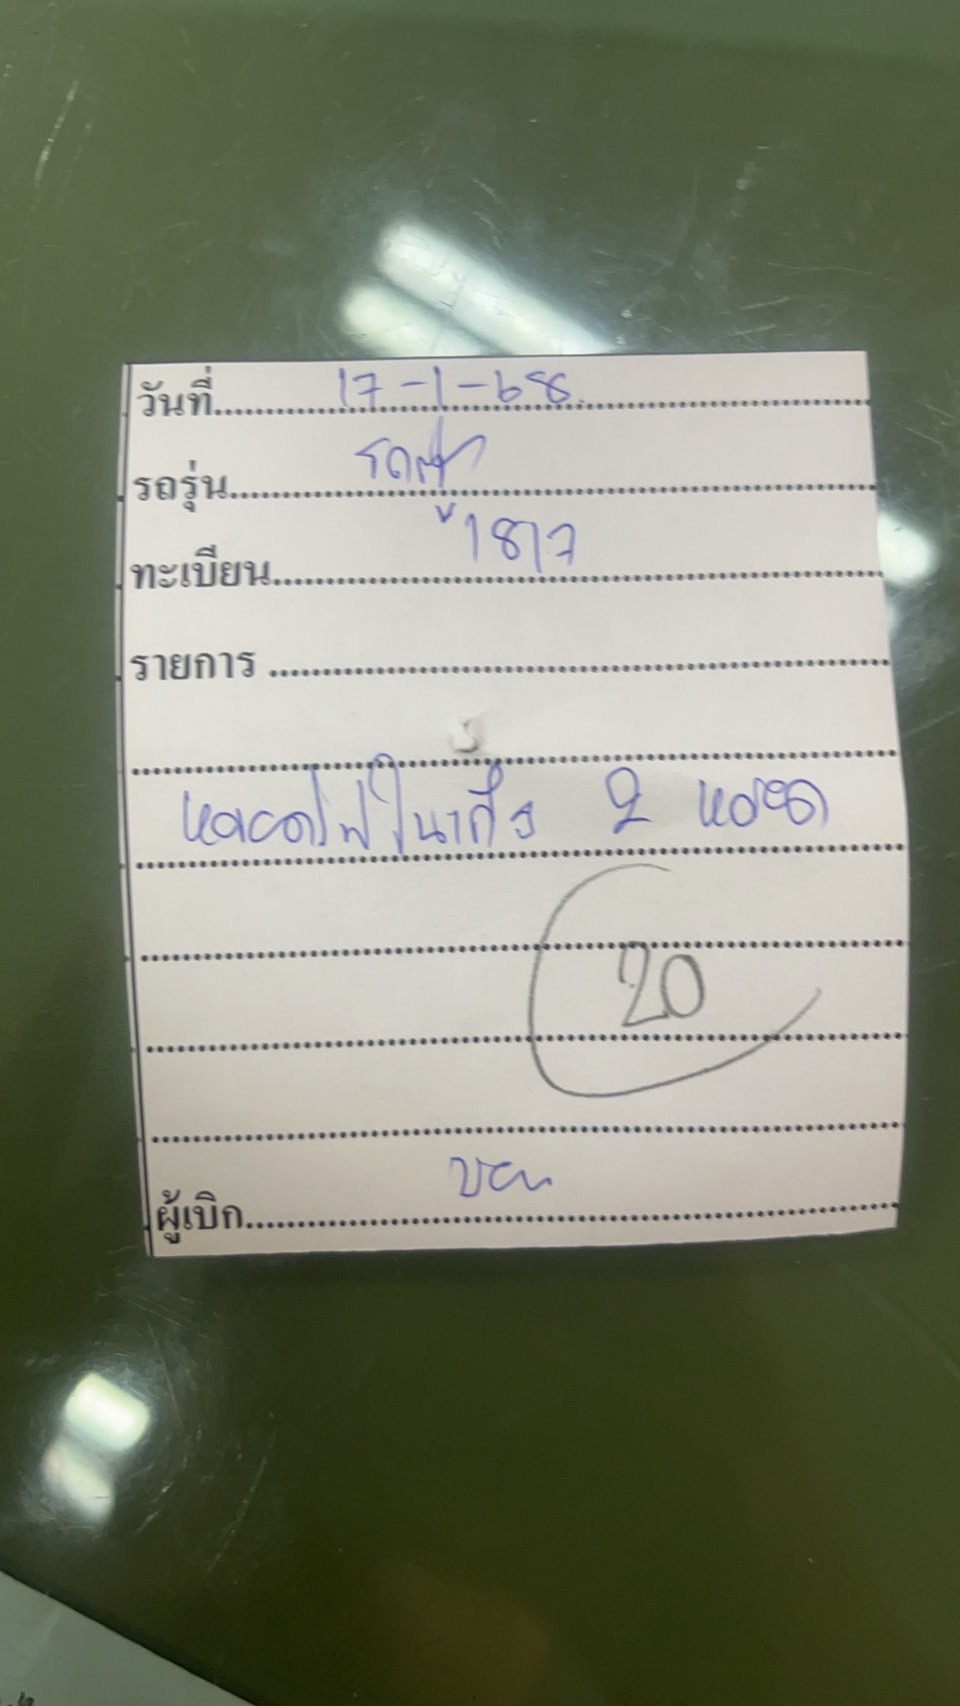 วันที่ 17-1-68
รถรุ่น รถตู้
ทะเบียน 1817
รายการ
หลอดไฟในเก๋ง 2 หลอด
20
ผู้เบิก